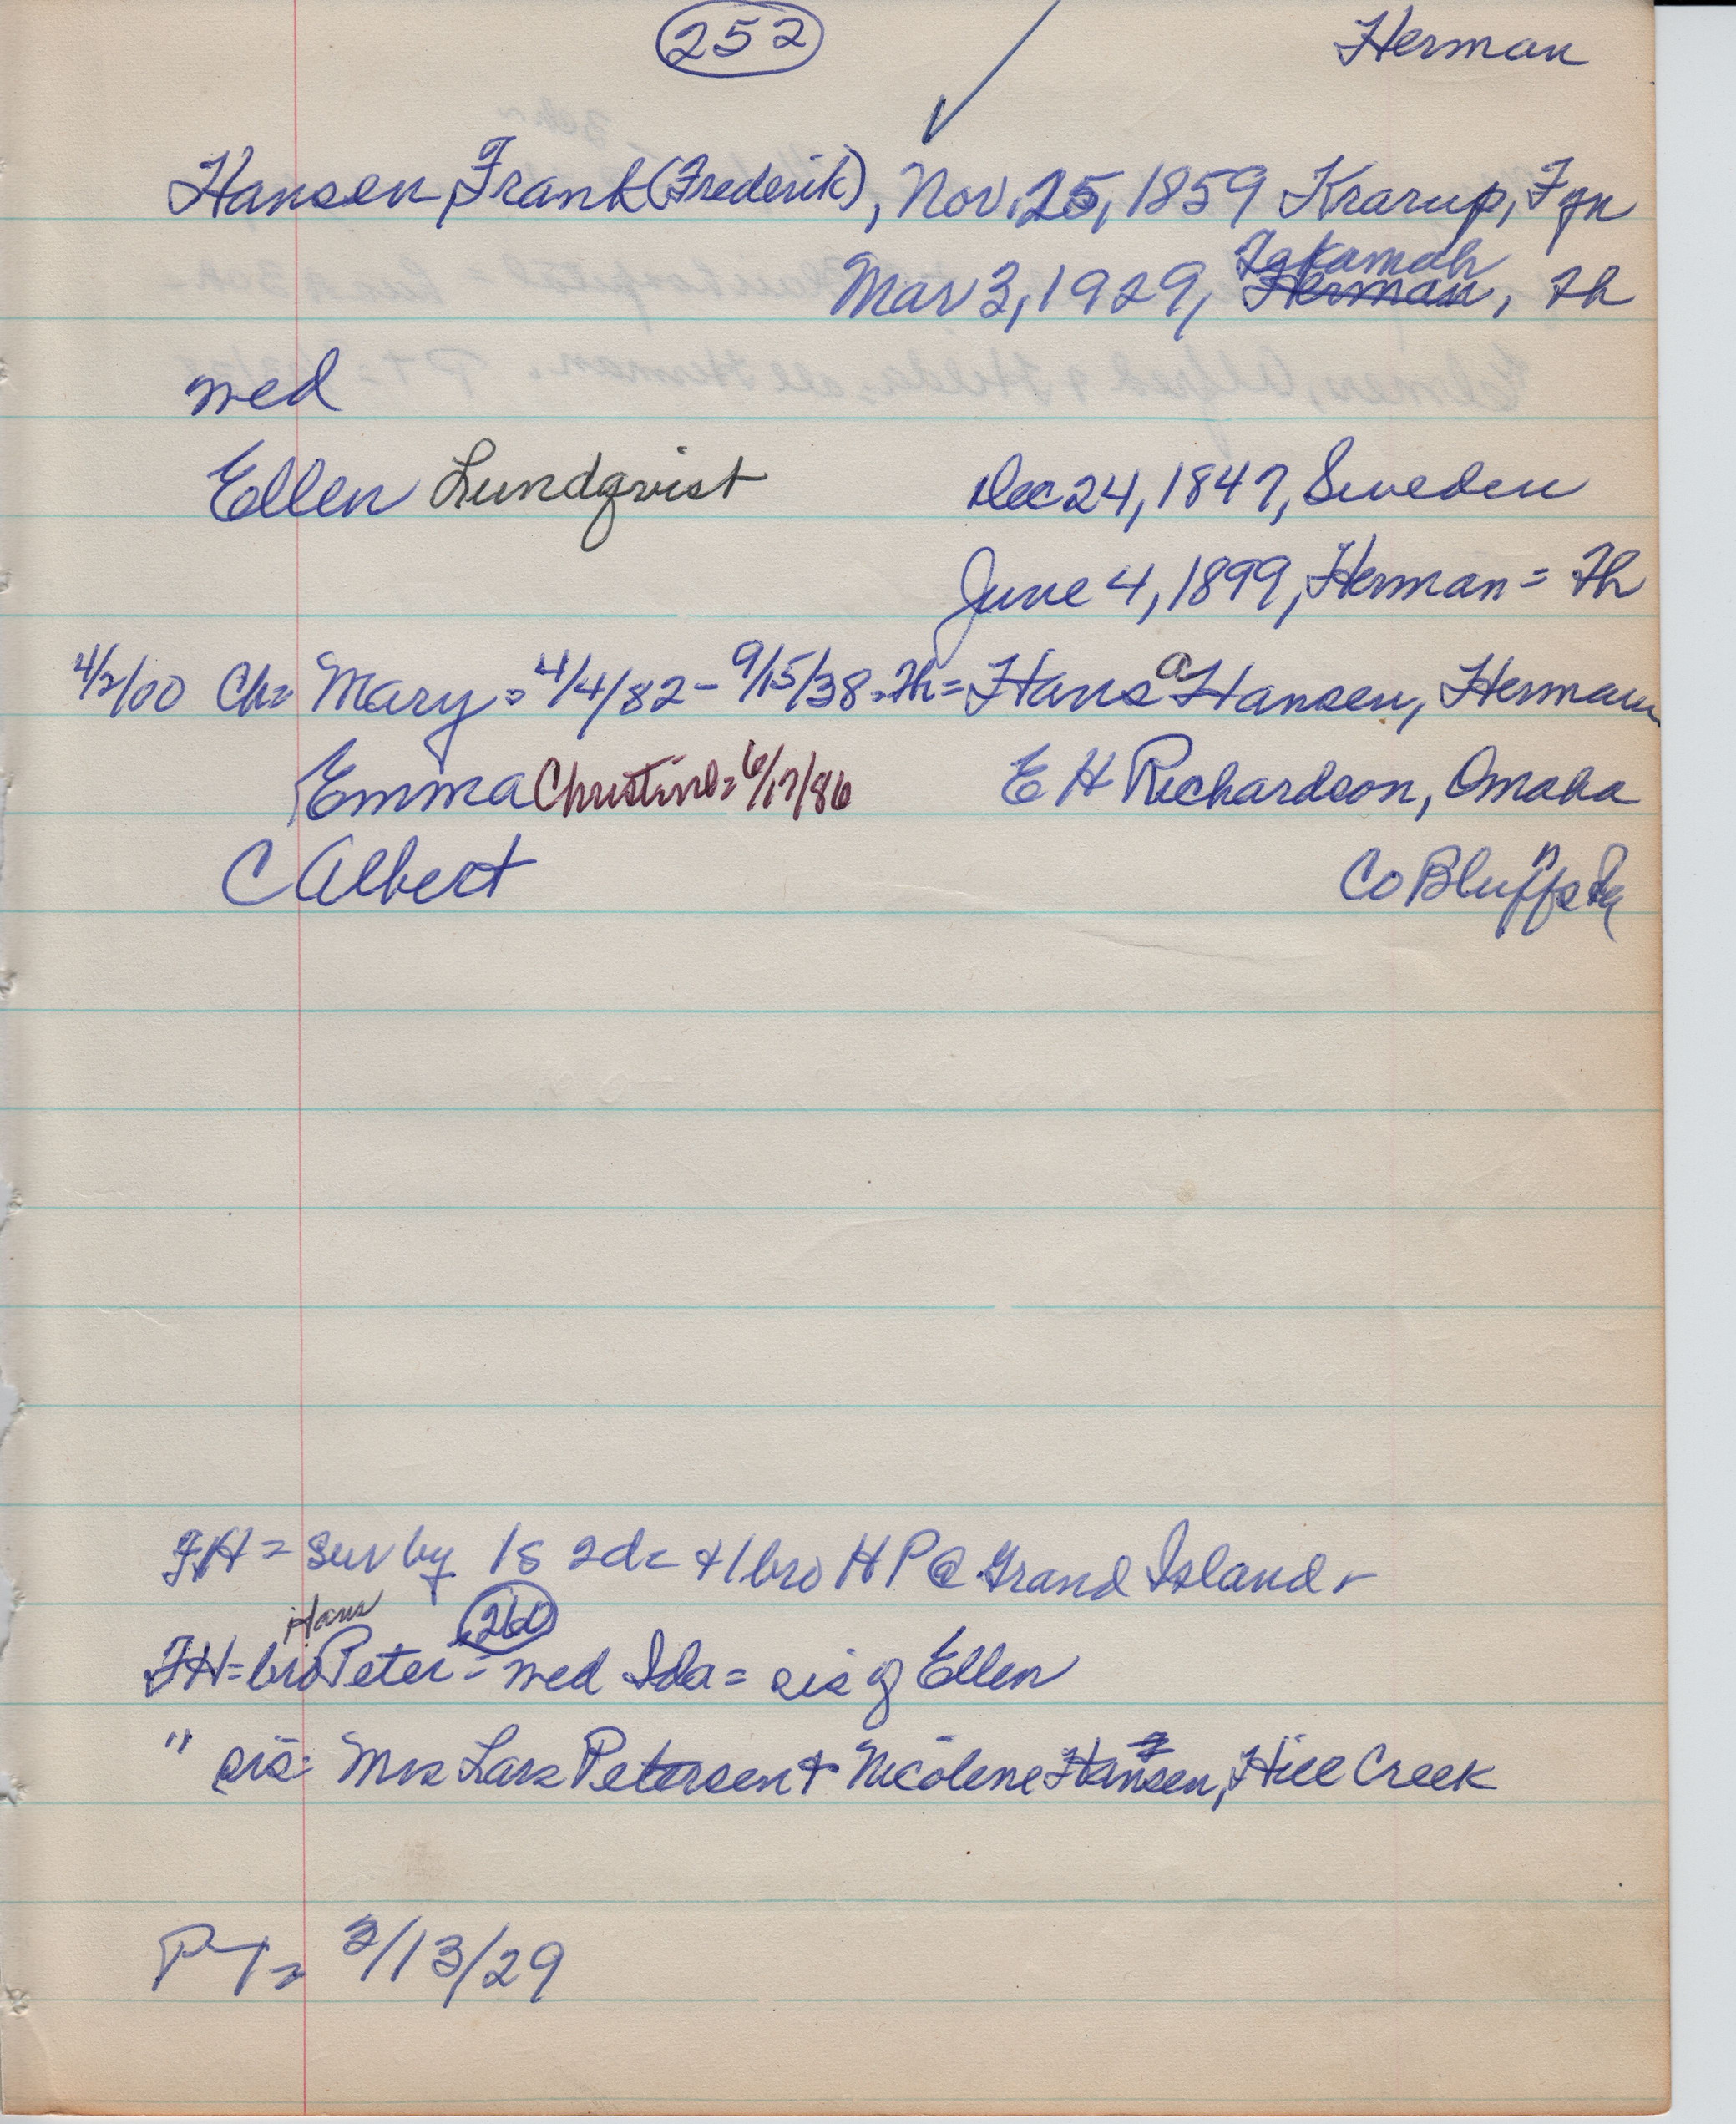 252 Herman
Hansen, Frank (Frederik), Nov. 25, 1859 Krarup, Fyn
Tekamah
Mar 3, 1929, Herman, Fh
med
Ellen Lundqvist Dec 24, 1847, Sweden
June 4, 1899, Herman = Fh
4/2/00 Ch= Mary = 4/4/82 - 9/15/38. Fh = Hans a Hansen, Herman
Emma Christine = 6/17/86 E H Richardson, Omaha
C Albert Co Bluffs Ia
FH = surv by 1s 2d = + 1 bro H P @ Grand Island
Hans 260
FH = bro Peter = med Ida = sis of Ellen
" sis = Mrs Lars Petersen + Nicolene Hansen, Hill Creek
PT = 3/13/29